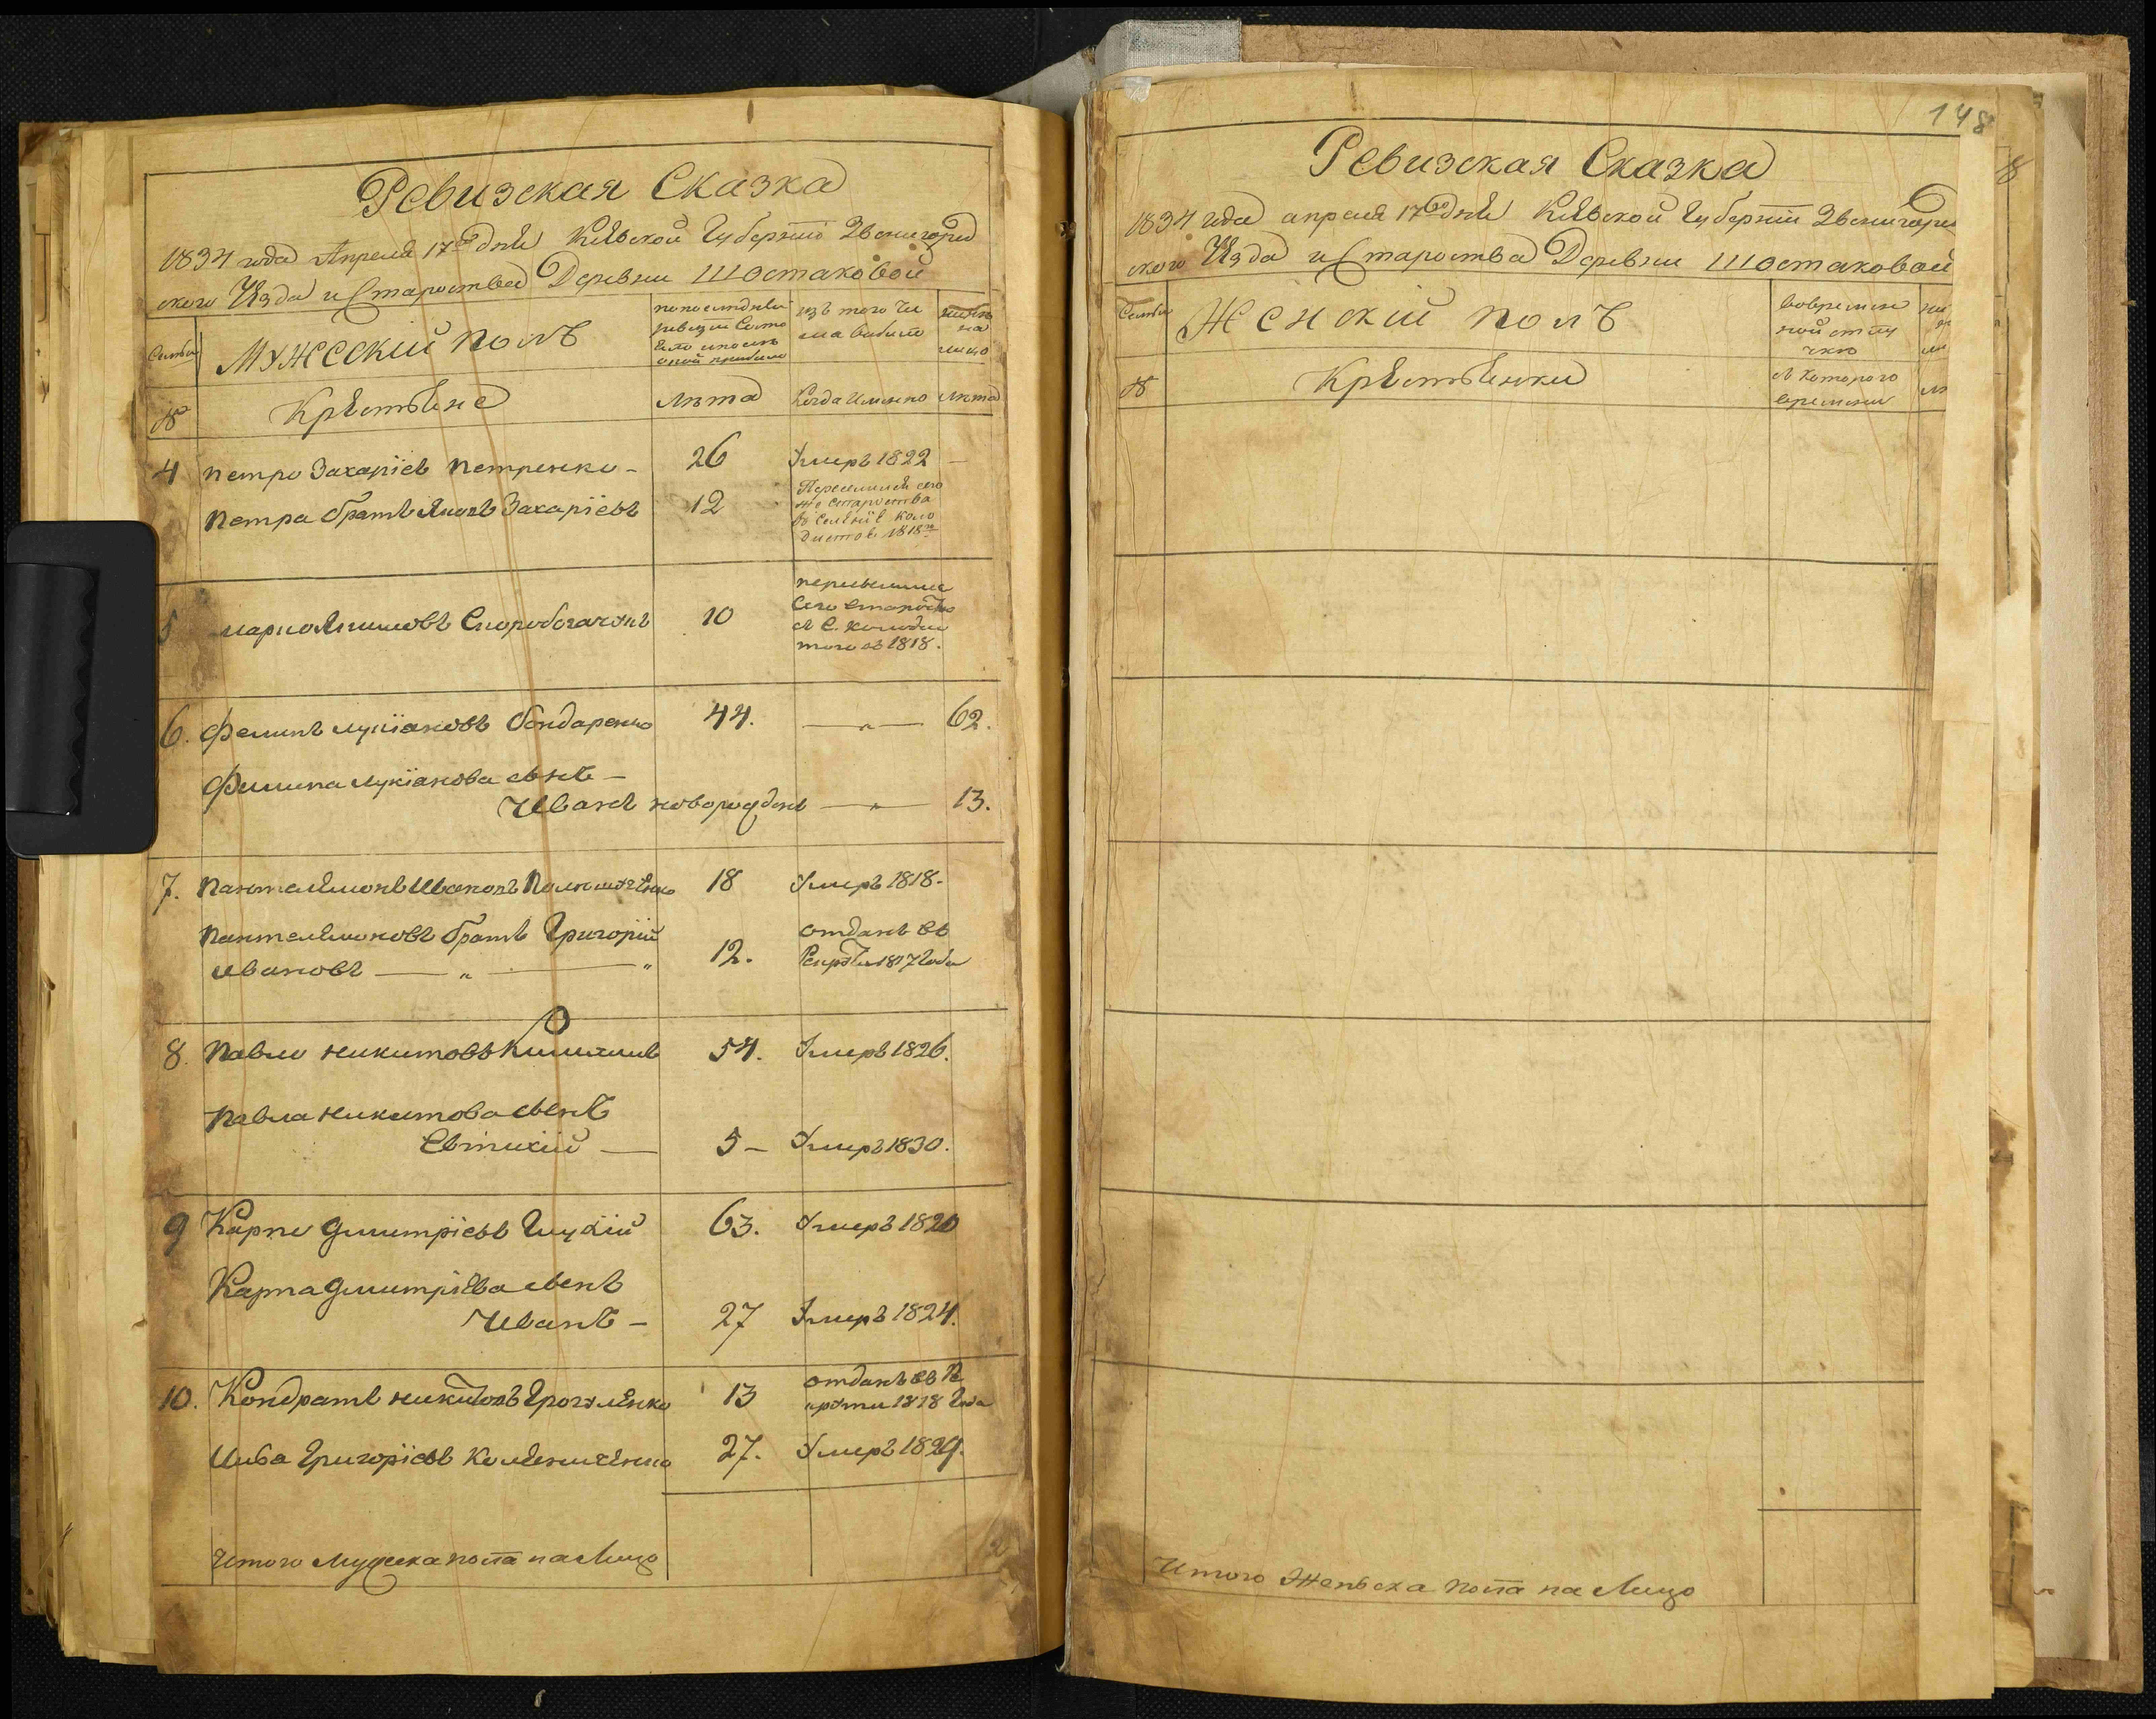 Ревизская Сказка
1834 года Апреля 17го дня Кіевской Губерніи Звенигород
ского Уѣзда и Староства Деревни Шостаковой
Семьи
Мужеский полъ
по последней
ревизіи состо
яло и после
оной прибыло
изъ того чи
сла выбыло
ныне
на
лицо
№
Крестьяне
Лѣта
Когда Именно
Лѣта
4 Петро Захаріевъ Петренко - 26 Умеръ 1822 —
Петра братъ Яковъ Захаріевъ 12
Переселился сего
же староства
въ селеніе Коло
дистое 1818 г
5 Марко Якимовъ Скоробогачъ 10
сего староства
въ С. Колодис
тое въ 1818.
6. Филипъ Лукіяновъ Бондаренко 44. — " — 62.
Филипа Лукіянова сынъ —
Иванъ новорожденъ — " — 13.
7. Пантелемонъ Ивановъ 18 Умеръ 1818.
Пантелемоновъ братъ Григорій
Ивановъ — " — " 12.
отданъ въ
Рекруты 1817 года
8. Павло Никитовъ 54. Умеръ 1826.
Павла Никитова сынъ
Евтихій — 5 — Умеръ 1830.
9 Карпо Дмитріевъ Глухій 63. Умеръ 1820
Карпа Дмитріева сынъ
Иванъ — 27 Умеръ 1824.
10. Кондратъ Никитовъ 13
отданъ въ Ре
круты 1818 Года
Григоріевъ 27. Умеръ 1829.
Итого Мужеска пола на Лицо
148
Ревизская Сказка
1834 года апреля 17го дня Кіевской Губерніи Звенигород
ского Уѣзда и Староства Деревни Шостаковой
Семьи
Женскій полъ
вовремен
ной отлу
чке
№
Крестьянки
съ которого
времени
Итого Женьска пола на Лицо